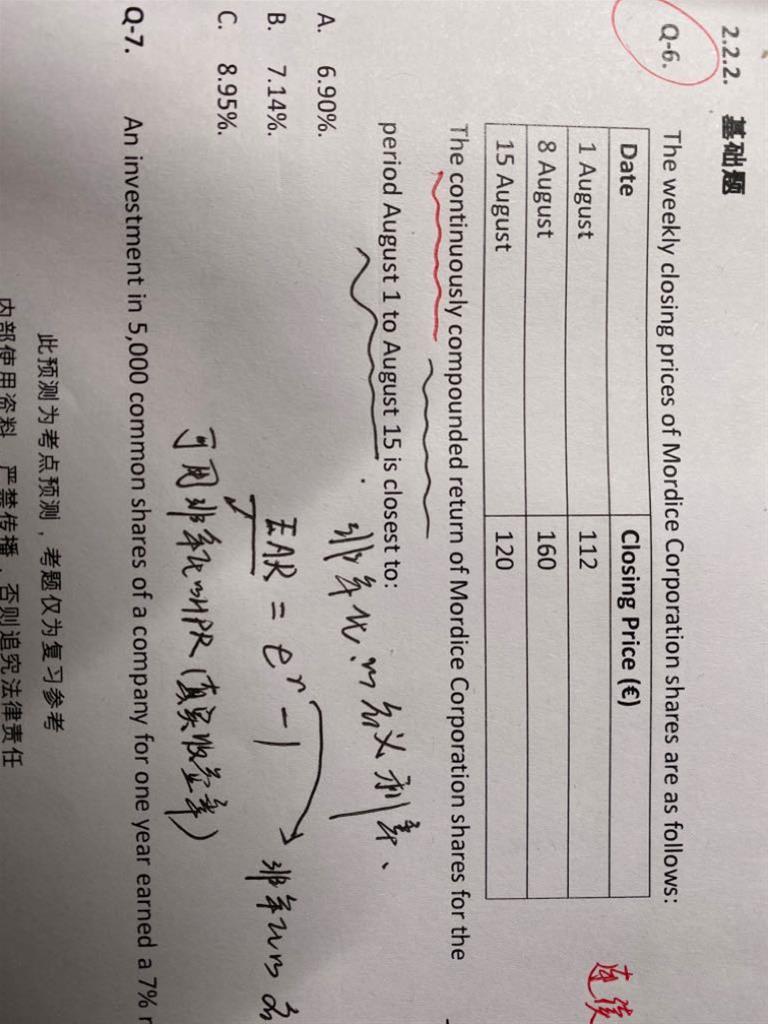 2.2.2. 基础题
Q-6. The weekly closing prices of Mordice Corporation shares are as follows:
Date Closing Price (€)
1 August 112
8 August 160
15 August 120
连续
The continuously compounded return of Mordice Corporation shares for the
period August 1 to August 15 is closest to:
非年化的名义利率、
A. 6.90%.
B. 7.14%.
C. 8.95%.
EAR = e^r - 1
非年化的
可用非年化的HPR (真实收益率)
Q-7. An investment in 5,000 common shares of a company for one year earned a 7%
此预测为考点预测，考题仅为复习参考
内部使用资料，严禁传播，否则追究法律责任